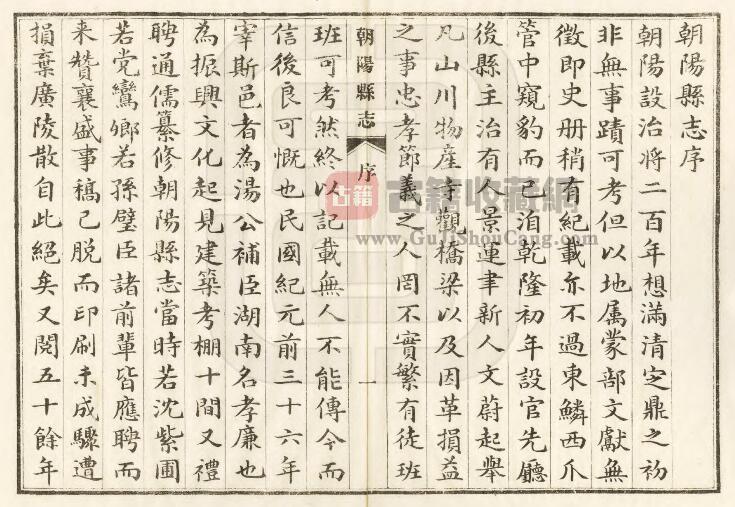 朝陽縣志序
朝陽設治將二百年想滿清定鼎之初
非無事蹟可考但以地属蒙部文獻無
徴即史册稍有紀載亦不過東鱗西爪
管中窺豹而已洎乾隆初年設官先廳
後縣主治有人景運聿新人文蔚起舉
凡山川物產寺觀橋梁以及因革損益
之事忠孝節義之人罔不實繁有徒班
朝陽縣志
序
一
班可考然終以記載無人不能傳今而
信後良可慨也民國紀元前三十六年
宰斯邑者為湯公補臣湖南名孝廉也
為振興文化起見建築考棚十間又禮
聘通儒纂修朝陽縣志當時若沈紫圃
若党鸞鄉若孫璧臣諸前輩皆應聘而
来贊襄盛事稿己脱而印刷未成驟遭
損棄廣陵散自此絕矣又閱五十餘年
古籍
古籍收藏網
www.GujiShouCang.com